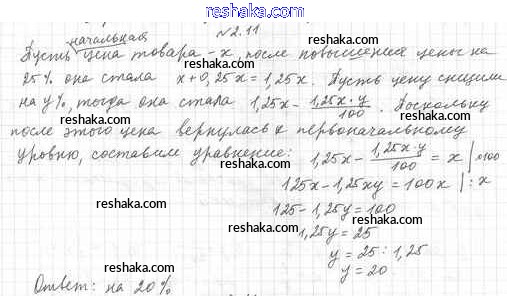 reshaka.ru
№2.11
Пусть начальная цена товара - x, после повышения цены на
25% она стала x+0,25x=1,25x. Пусть цену снизили
на y%, тогда она стала 1,25x - 1,25x·y/100. Поскольку
после этого цена вернулась к первоначальному
уровню, составим уравнение: 1,25x - 1,25x·y/100 = x |x100
125x - 1,25xy = 100x |:x
125 - 1,25y = 100
1,25y = 25
y = 25 : 1,25
y = 20
Ответ: на 20%
reshaka.ru
reshaka.ru
reshaka.ru
reshaka.ru
reshaka.ru
reshaka.ru
reshaka.ru
reshaka.ru
reshaka.ru
reshaka.ru
reshaka.ru